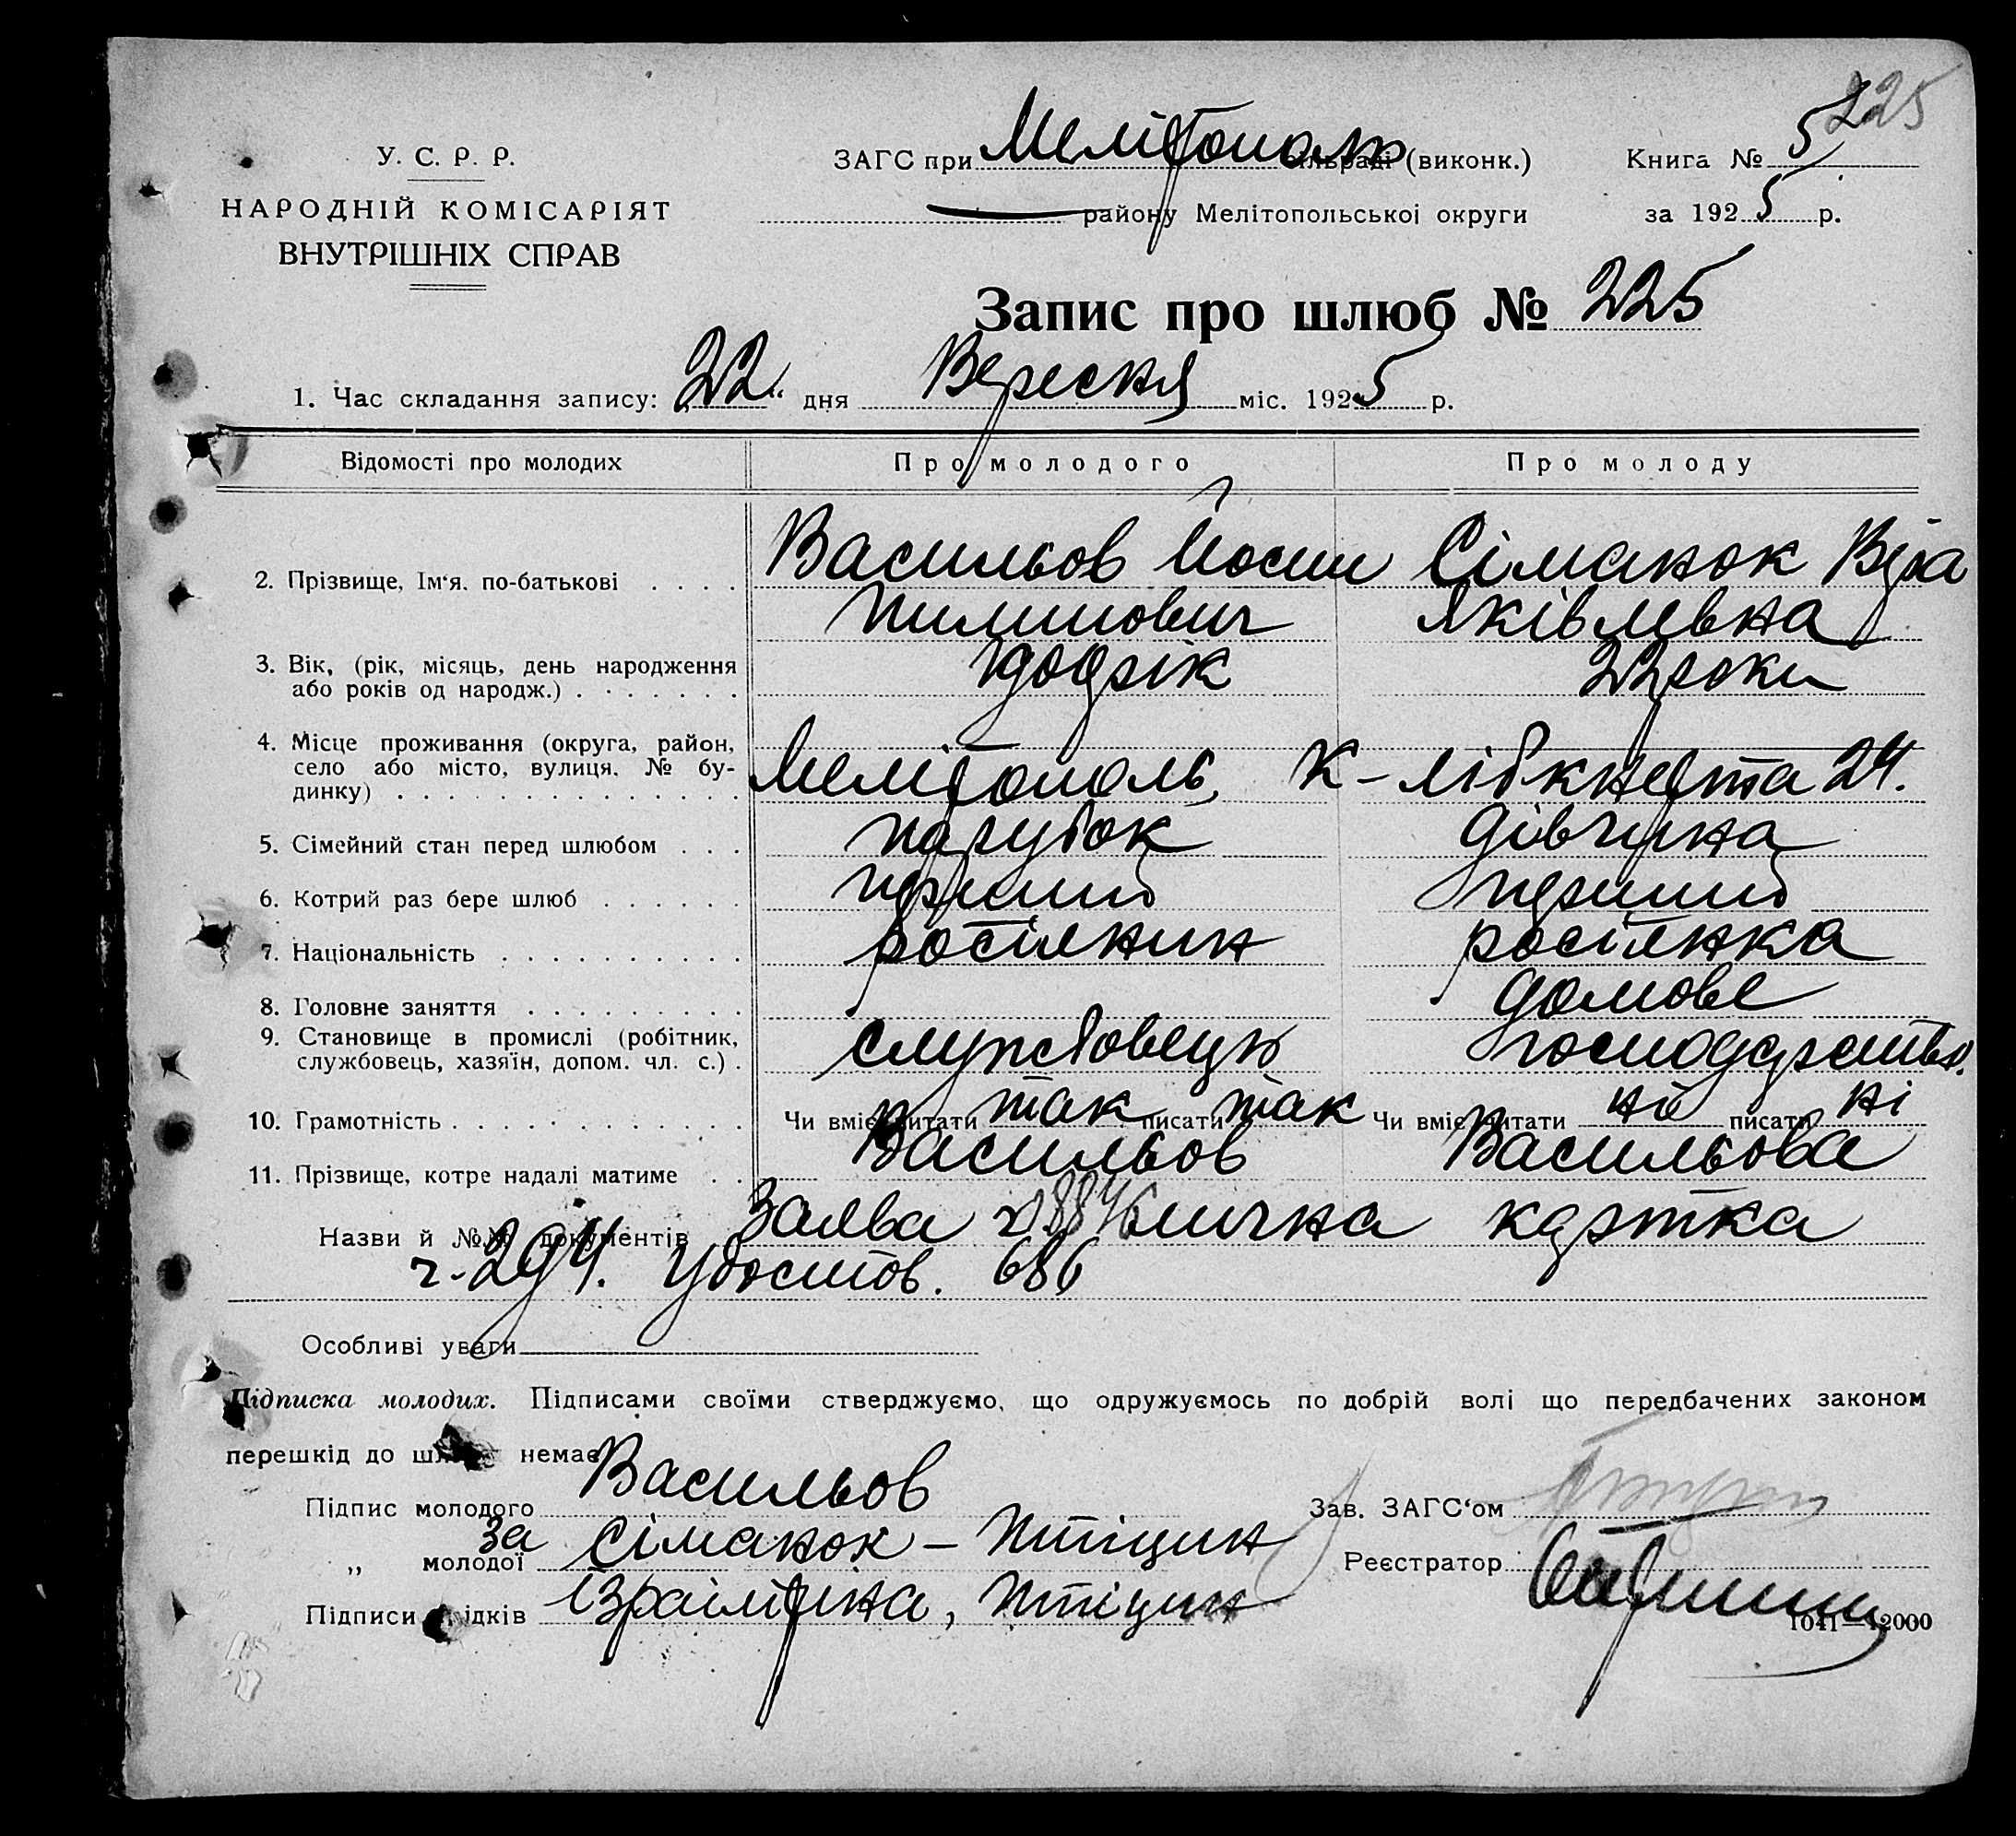 225
У. С. Р. Р.
НАРОДНІЙ КОМІСАРІЯТ
ВНУТРІШНІХ СПРАВ
ЗАГС при Мелітополь сільраді (виконк.)
району Мелітопольської округи
Книга № 5
за 1925 р.
Запис про шлюб № 225
1. Час складання запису: „22“ дня Вересня міс. 1925 р.
Відомості про молодих Про молодого Про молоду
2. Прізвище, Ім‘я. по-батькові Васильов Йосип Сіманок Віра
Пилипович Яківлевна
3. Вік, (рік, місяць, день народження або років од народж.) рік 22 роки
4. Місце проживання (округа, район, село або місто, вулиця. № будинку) Мелітополь, К-Лібкнехта 24.
5. Сімейний стан перед шлюбом парубок дівчина
6. Котрий раз бере шлюб перший перший
7. Національність росіянин росіянка
8. Головне заняття домове
9. Становище в промислі (робітник, службовець, хазяїн, допом. чл. с.) службовець господарство.
10. Грамотність Чи вміє читати так писати так Чи вміє читати ні писати ні
11. Прізвище, котре надалі матиме Васильов Васильова
Назви й №№ документів Заява личка картка
ч-294. Удостов. 686
Особливі уваги
Підписка молодих. Підписами своїми стверджуємо, що одружуємось по добрій волі що передбачених законом
перешкід до шлюбу немає
Підпис молодого Васильов
„ молодої за Сіманок – Птіцин
Підписи свідків Ізраілевна, Птіцин
Зав. ЗАГС‘ом
Реєстратор
1041—12000